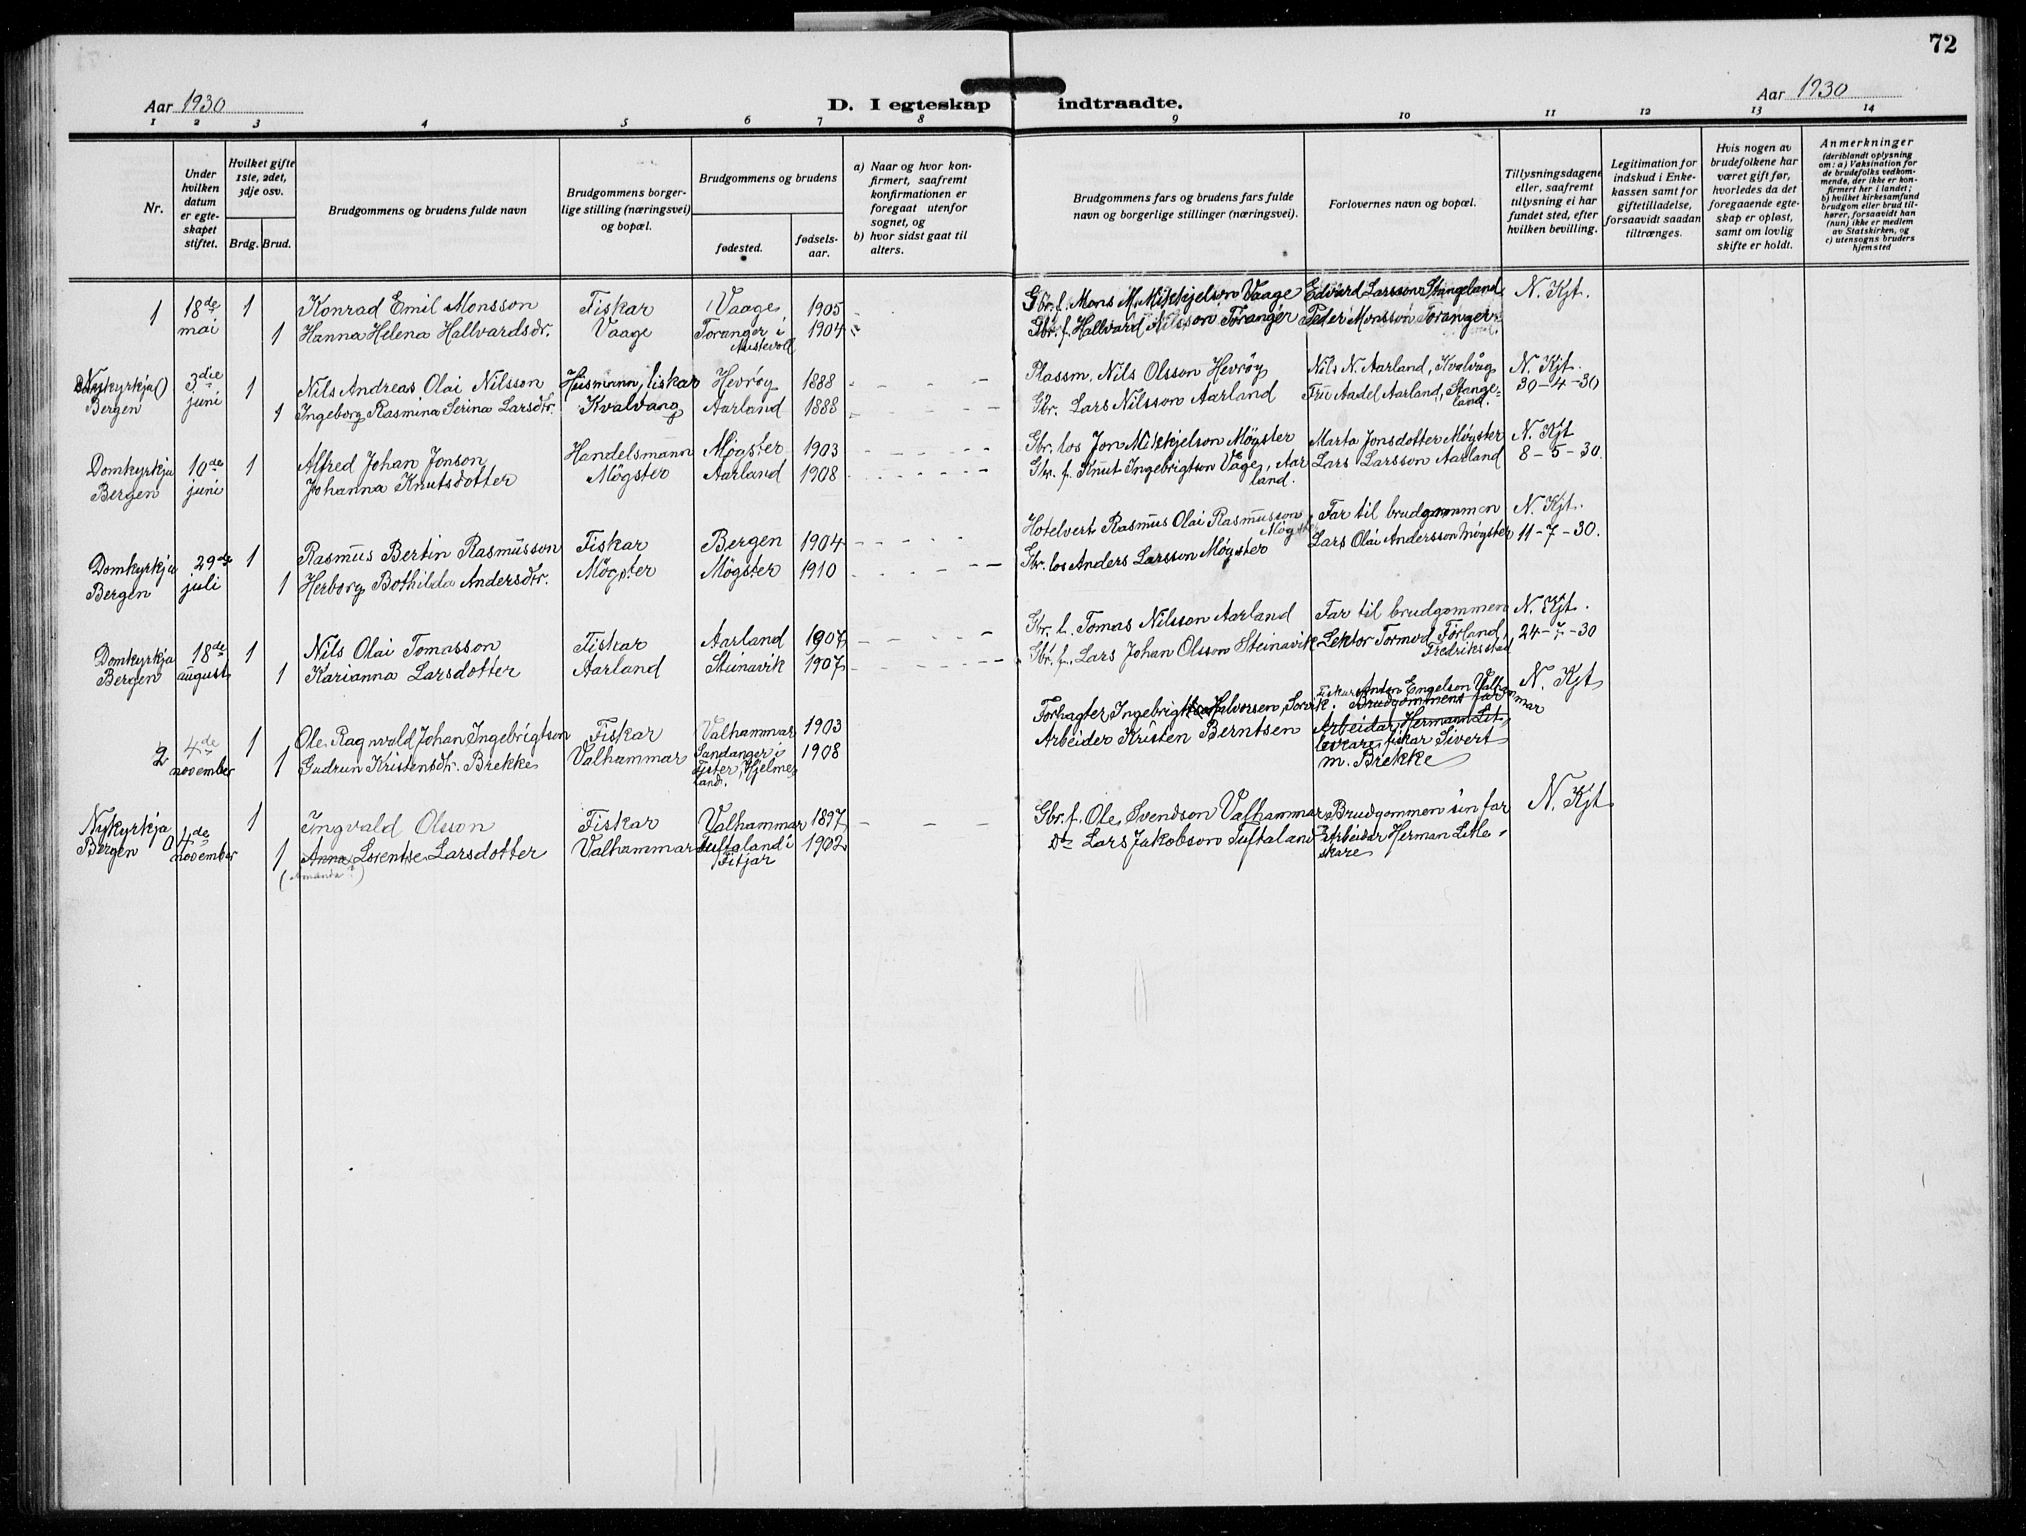 72
Aar 1930
D. I egteskap indtraadte.
Aar 1930
1 2 3 4 5 6 7 8 9 10 11 12 13 14
Nr.
Under hvilken datum er egteskapet stiftet.
Hvilket gifte 1ste, 2det, 3dje osv.
Brdg. Brud.
Brudgommens og brudens fulde navn
Brudgommens borgerlige stilling (næringsvei) og bopæl.
Brudgommens og brudens
fødested.
fødselsaar.
a) Naar og hvor konfirmert, saafremt konfirmationen er foregaat utenfor sognet, og
b) hvor sidst gaat til alters.
Brudgommens fars og brudens fars fulde navn og borgerlige stillinger (næringsvei).
Forlovernes navn og bopæl.
Tillysningsdagene eller, saafremt tillysning ei har fundet sted, efter hvilken bevilling.
Legitimation for indskud i Enkekassen samt for giftetilladelse, forsaavidt saadan tiltrænges.
Hvis nogen av brudefolkene har været gift før, hvorledes da det foregaaende egteskap er opløst, samt om lovlig skifte er holdt.
Anmerkninger (deriblandt oplysning om: a) Vaksination for de brudefolks vedkommende, der ikke er konfirmert her i landet; b) hvilket kirkesamfund brudgom eller brud tilhører, forsaavidt han (hun) ikke er medlem av Statskirken, og c) utensogns bruders hjemsted
1 18de mai 1 Konrad Emil Monsson Fiskar Vaage 1905 Gbr. f. Mons M. Mikkjelson Vaage Edvard Larsson Stangeland N. Kjt.
1 Hanna Helena Hallvardsdr. Vaage Toranger i Austevoll 1904 Gbr. f. Hallvard Nilsson Toranger Peder Monsson Toranger
Nykyrkja Bergen 3die juni 1 Nils Andreas Olai Nilsson Husmann, fiskar Hevrøy 1888 Plassm. Nils Olsson Hevrøy Nils N. Aarland, Kvalvåg N. Kjt.
1 Ingeborg Rasmina Serina Larsdtr. Kvalvaag Aarland 1888 Gbr. Lars Nilsson Aarland Fru Aadel Aarland, Stangeland. 30-4-30
Domkyrkja Bergen 10de juni 1 Alfred Johan Jonson Handelsmann Møgster 1903 Gbr. los Jon Mikkjelson Møgster Marta Jonsdotter Møgster N. Kjt
Johanna Knutsdotter Møgster Aarland 1908 Gbr. f. Knut Ingebrigtson Våge, Aarland. Lars Larsson Aarland 8-5-30.
Domkyrkja Bergen 29de juli 1 Rasmus Bertin Rasmusson Fiskar Bergen 1904 Hotelvert Rasmus Olai Rasmusson Møgster Far til brudgommen N. Kjt.
1 Herborg Bothilda Andersdtr. Møgster Møgster 1910 Gbr. los Anders Larsson Møgster Lars Olai Andersson Møgster 11-7-30.
Domkyrkja Bergen 18de august 1 Nils Olai Tomasson Fiskar Aarland 1907 Gbr. f. Tomas Nilsson Aarland Far til brudgommen N. Kjt.
1 Karianna Larsdotter Aarland Steinavik 1907 Gbr. f. Lars Johan Olsson Steinavik Lektor Tormod Førland, Fredrikstad 24-7-30
2 4de november 1 Ole Ragnvald Johan Ingebrigtson Fiskar Valhammar 1903 Forpagter Ingebrigt Halvorsen, Fiskar Anton Engelson Valhammar Brudgommens far N. Kjt
1 Gudrun Kristensdtr. Brekke Valhammar Sandanger i Fister, Hjelmeland. 1908 Arbeider Kristen Berntsen Arbeidar Hermann Litleskare, fiskar Sivert M. Brekke
Nykyrkja Bergen 4de november 1 Ingvald Olsson Fiskar Valhammar 1897 Gbr. f. Ole Svendson Valhammar Brudgommen sin far N. Kjt
1 Anna Lorentse Larsdotter Valhammar Tuftaland i Fitjar 1902 Do Lars Jakobson Tuftaland Arbeidar Herman Litleskare
(Amanda?)